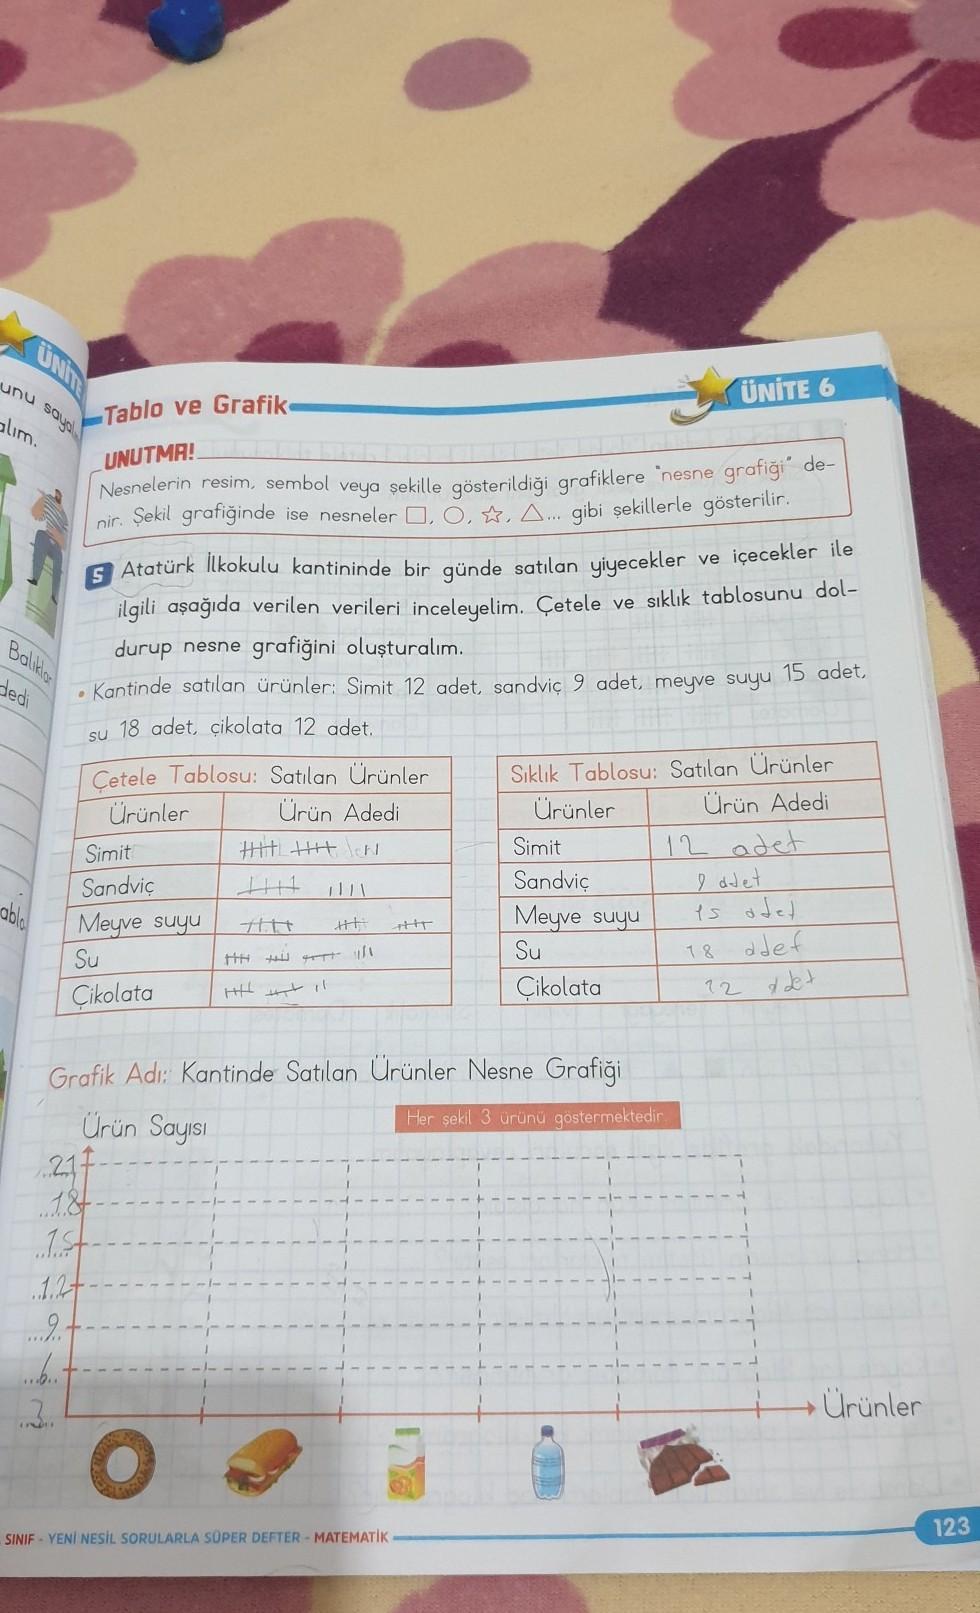 ÜNİTE
unu sayal
alım.
Balıklar
dedi
Tablo ve Grafik
ÜNİTE 6
UNUTMA!
Nesnelerin resim, sembol veya şekille gösterildiği grafiklere "nesne grafiği" de-
nir. Şekil grafiğinde ise nesneler □, ○, ☆, △... gibi şekillerle gösterilir.
5 Atatürk İlkokulu kantininde bir günde satılan yiyecekler ve içecekler ile
ilgili aşağıda verilen verileri inceleyelim. Çetele ve sıklık tablosunu dol-
durup nesne grafiğini oluşturalım.
• Kantinde satılan ürünler: Simit 12 adet, sandviç 9 adet, meyve suyu 15 adet,
su 18 adet, çikolata 12 adet.
Çetele Tablosu: Satılan Ürünler
Ürünler Ürün Adedi
Simit
Sandviç
Meyve suyu
Su
Çikolata
Sıklık Tablosu: Satılan Ürünler
Ürünler Ürün Adedi
Simit 12 adet
Sandviç 9 adet
Meyve suyu 15 adet
Su 18 adet
Çikolata 12 adet
Grafik Adı: Kantinde Satılan Ürünler Nesne Grafiği
Ürün Sayısı
Her şekil 3 ürünü göstermektedir.
21
18
15
12
9
6
3
Ürünler
SINIF - YENİ NESİL SORULARLA SÜPER DEFTER - MATEMATİK
123